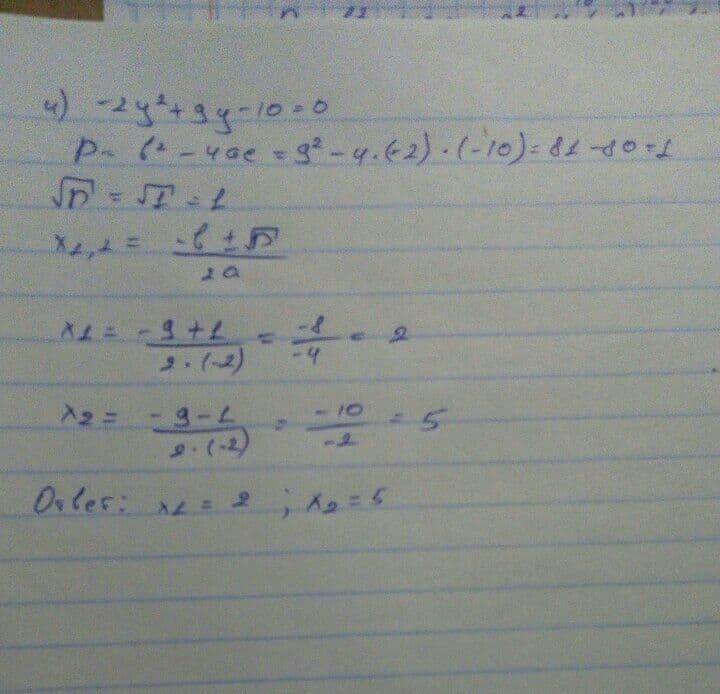 4) -2y²+9y-10=0
D= b²-4ac = 9²-4·(-2)·(-10)=81-80=1
√D = √1 = 1
x₁,₂ = (-b ± √D)/(2a)
x1 = (-9+1)/(2·(-2)) = (-8)/(-4) = 2
x2 = (-9-1)/(2·(-2)) = (-10)/(-2) = 5
Ответ: x1 = 2 ; x2 = 5